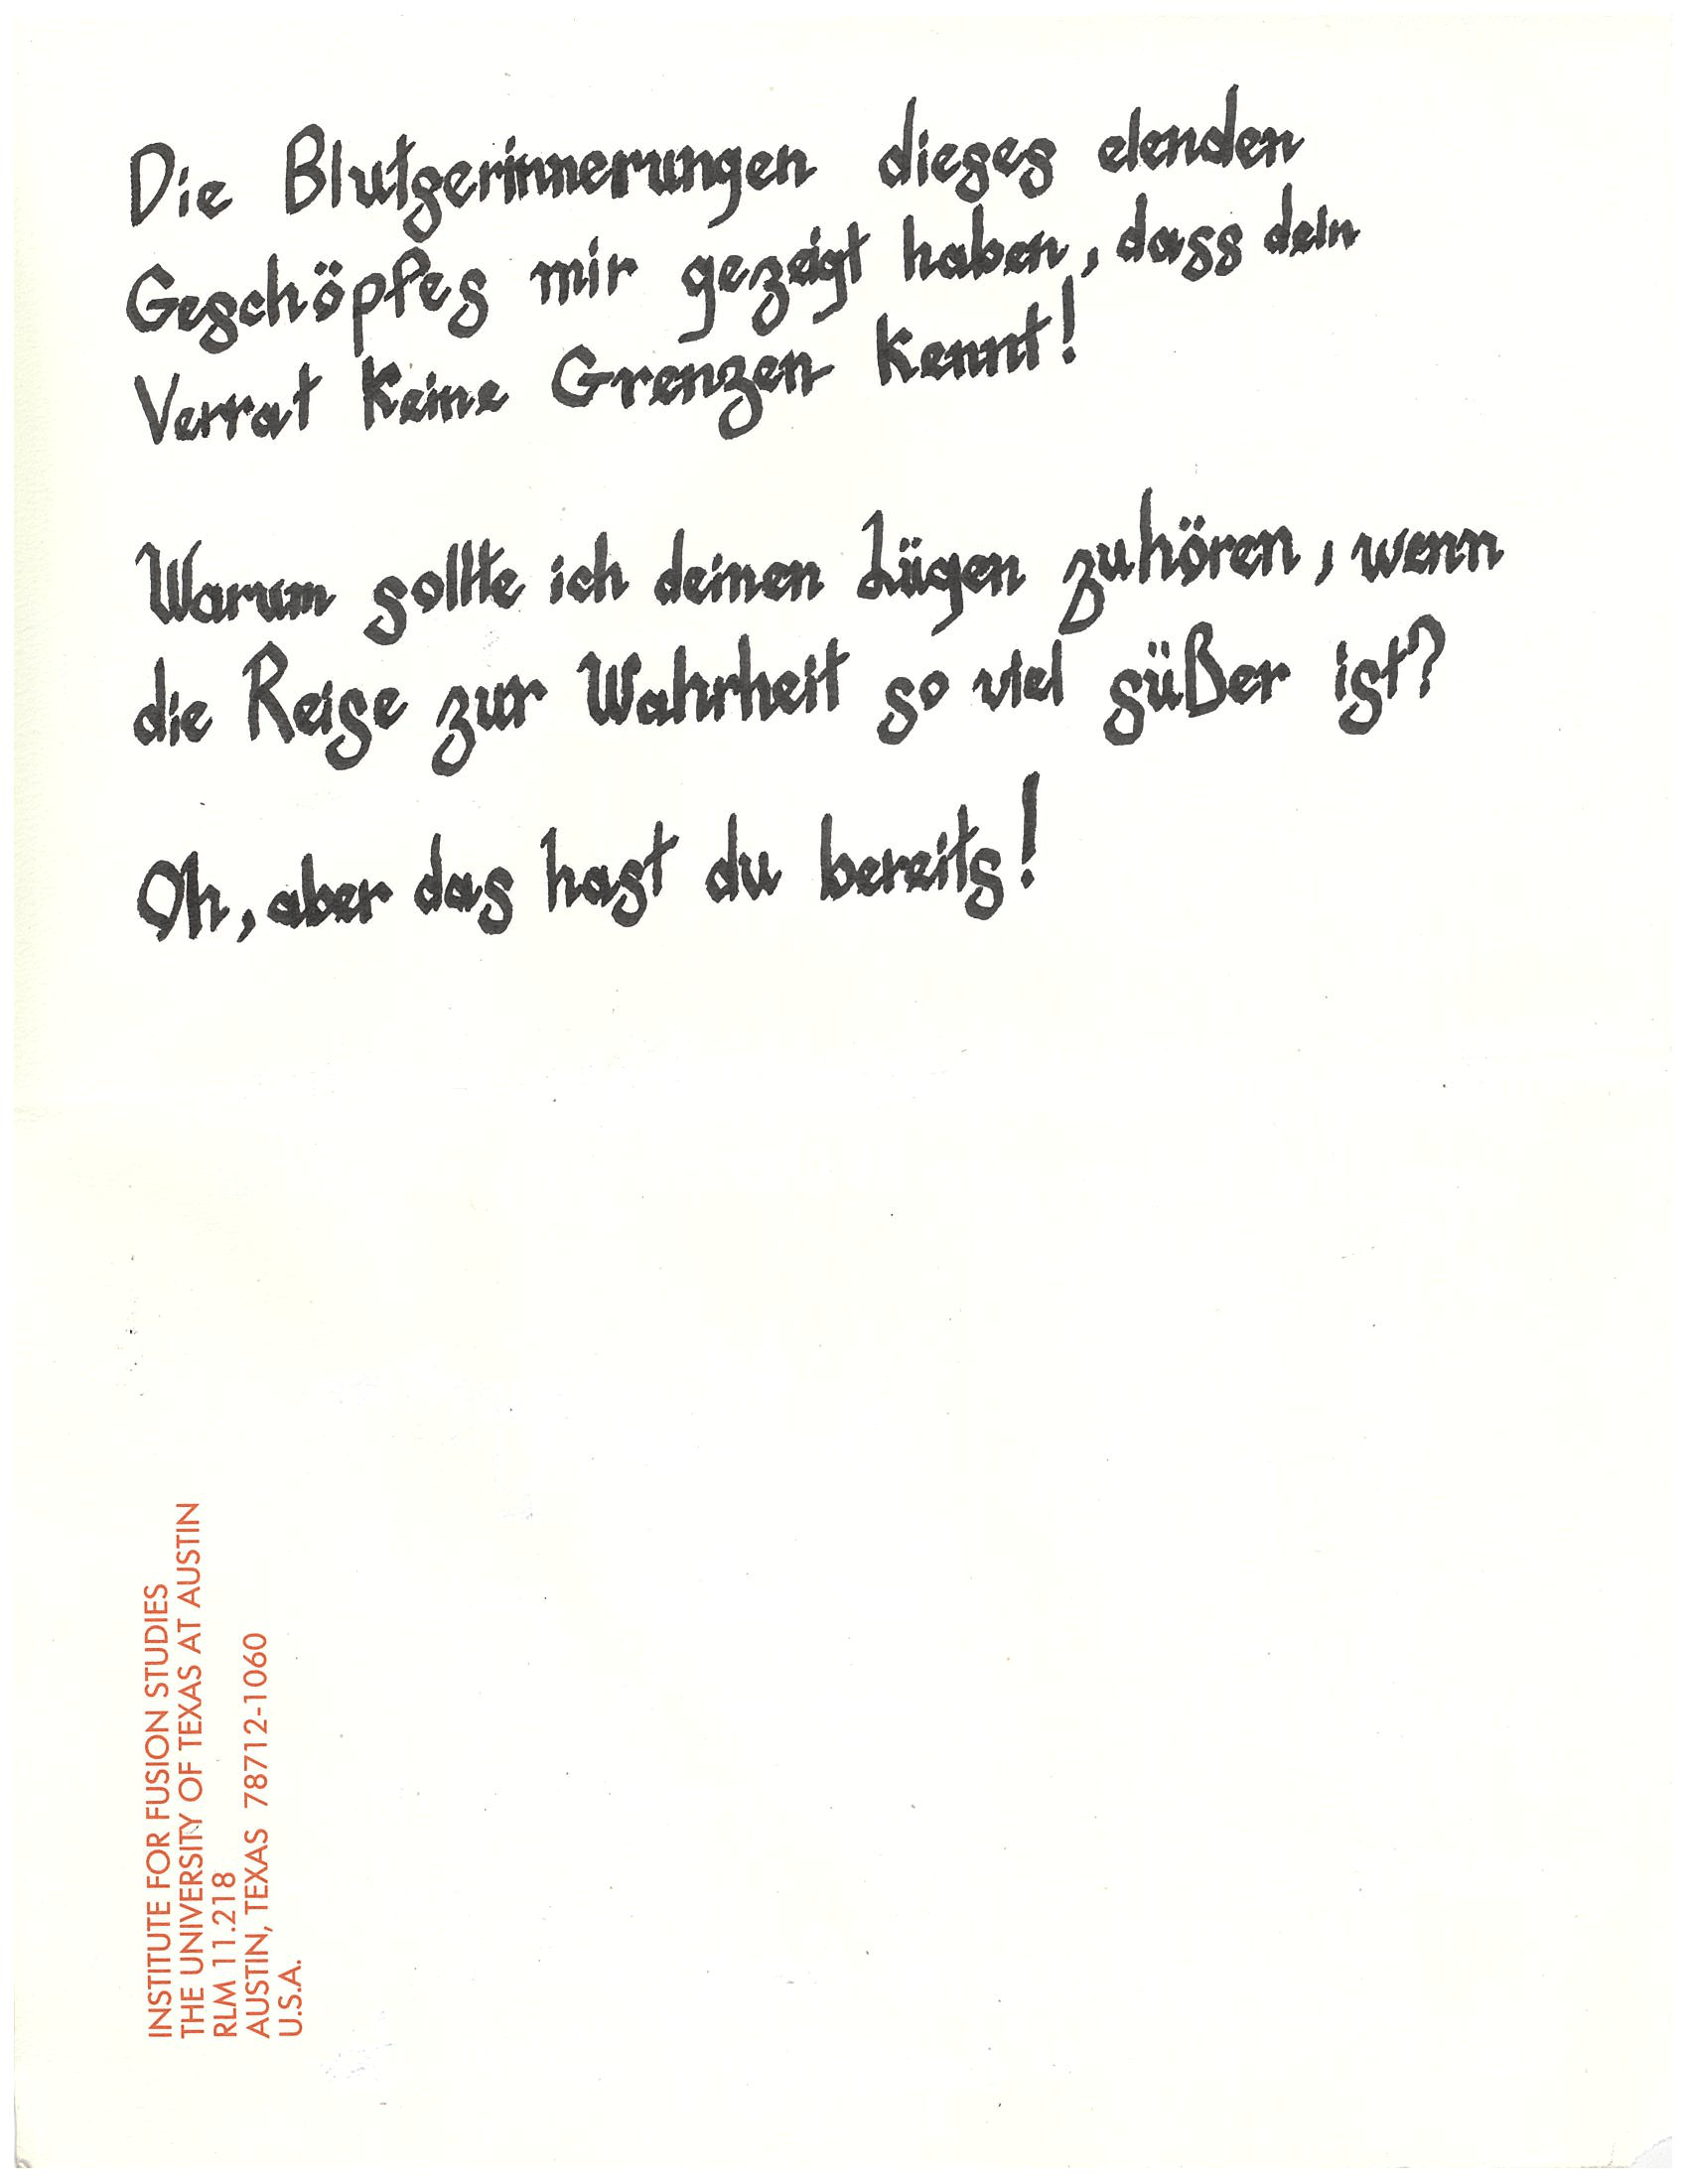 Die Blutserinnerungen dieses elenden
Geschöpfes mir gezeigt haben, dass dein
Verrat keine Grenzen kennt!
Warum sollte ich deinen Lügen zuhören, wenn
die Reise zur Wahrheit so viel süßer ist?
Oh, aber das hast du bereits!
INSTITUTE FOR FUSION STUDIES
THE UNIVERSITY OF TEXAS AT AUSTIN
RLM 11.218
AUSTIN, TEXAS 78712-1060
U.S.A.